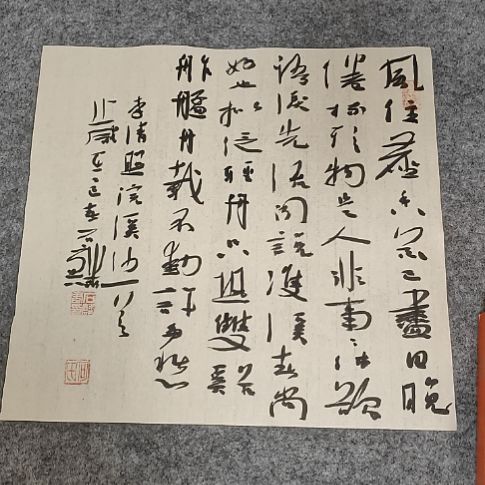 風住塵香花已盡日晚
倦梳頭物是人非事事休欲
語淚先流聞說雙溪春尚
好也拟泛輕舟只恐雙溪
舴艋舟載不動許多愁
李清照浣溪沙一首
歲在乙巳春